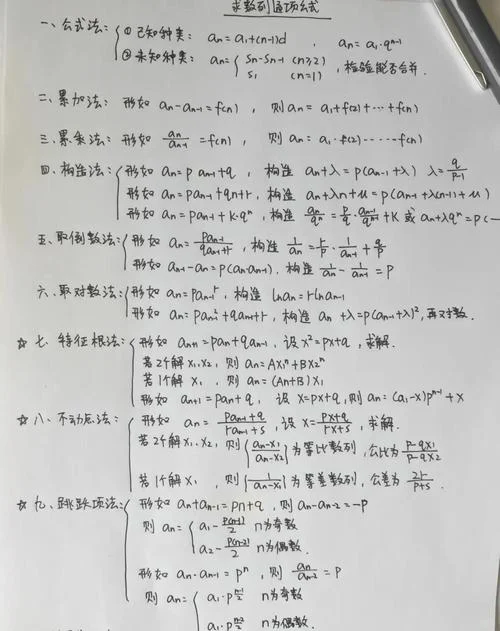 求数列通项公式
一、公式法：① 已知种类：an=a1+(n-1)d ， an=a1·q^(n-1)
② 未知种类：an={Sn-Sn-1 (n≥2)
S1 (n=1) ，检验能否合并.
二、累加法：形如 an-an-1=f(n) ，则 an=a1+f(2)+…+f(n)
三、累乘法：形如 an/an-1=f(n) ， 则 an=a1·f(2)……f(n)
四、构造法：形如 an=pan-1+q ，构造 an+λ=p(an-1+λ) λ=q/(p-1)
形如 an=pan-1+qn+r，构造 an+λn+μ=p(an-1+λ(n-1)+μ)
形如 an=pan-1+k·q^n ，构造 an/q^n=p/q·an-1/q^(n-1)+K 或 an+λq^n=p(
五、取倒数法：形如 an=pan-1/(qan-1+r)，构造 1/an=r/p·1/an-1+q/p
形如 an-1-an=p(an·an-1)，构造 1/an-1/an-1=p
六、取对数法：形如 an=pan-1^r，构造 lnan=rlnan-1
形如 an=pan-1^2+qan-1+r，构造 an+λ=p(an-1+λ)^2，再对数.
☆ 七、特征根法：形如 an+1=pan+qan-1，设 x^2=px+q，求解.
若2个解 x1、x2，则 an=Ax1^n+Bx2^n
若1个解 x1 ，则 an=(An+B)x1
形如 an+1=pan+q，设 x=px+q，则 an=(a1-x)p^(n-1)+x
☆ 八、不动点法：形如 an=(pan-1+q)/(ran-1+s)，设 x=(px+q)/(rx+s)，求解.
若2个解 x1、x2，则{(an-x1)/(an-x2)}为等比数列，公比为 (p-rx1)/(p-rx2)
若1个解 x1 ，则{1/(an-x1)}为等差数列，公差为 2r/(p+s).
☆ 九、跳跃项法：形如 an+an-1=pn+q，则 an-an-2=-p
则 an={a1-p(n-1)/2 n为奇数
a2-p(n-2)/2 n为偶数.
形如 an·an-1=p^n ，则 an/an-2=p
则 an={a1·p^((n-1)/2) n为奇数
n为偶数.